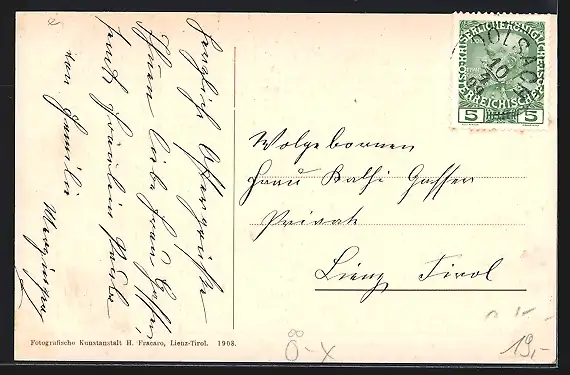 Herzlich Ostergrüße
Ihnen liebe Frau Gasser,
samt Fräulein Paula
von Familie
DOLSACH
10
09
KAISERLICHE KÖNIGLICHE
ÖSTERREICHISCHE
5 5
Wolgebornen
Frau Kathi Gasser
Private
Lienz Tirol
Fotografische Kunstanstalt H. Fracaro, Lienz-Tirol. 1908.
Ö-X
19,-